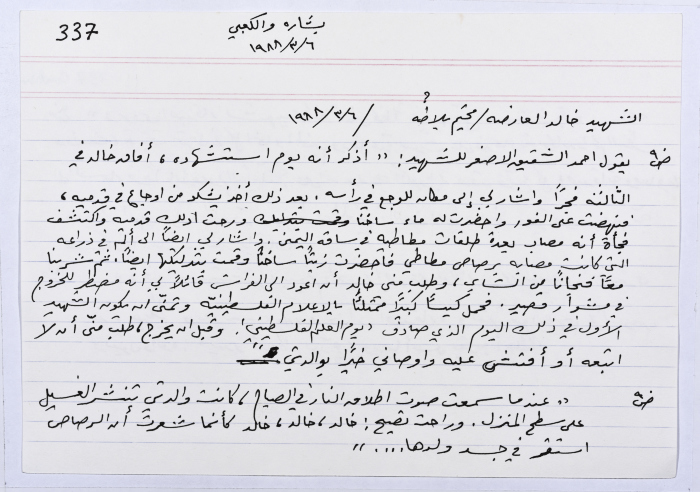 337
بشاره والكعبي
١٩٨٨/٣/٦
؟
الشهيد خالد العارضه / مخيم بلاطه / ١٩٨٨/٣/٦
ض٩ يقول احمد الشقيق الاصغر للشهيد: "أذكر أنه يوم استشهاده، أفاق خالد في
الثالثة فجرًا واشار لي إلى مكان الوجع في رأسه. بعد ذلك أخذ يشكو من اوجاع في قدميه،
فنهضت على الفور واحضرت له ماء ساخنًا ورحت ادلك قدميه واكتشفت
فجأة أنه مصاب بعدة طلقات مطاطيه في ساقه اليمنى. واشار لي ايضًا الى ألم في ذراعه
التي كانت مصابه برصاص مطاطي فأحضرت زيتًا ساخنًا وقمت بتدليكها ايضًا. ثم شربنا
معًا فنجانًا من الشاي، وطلب مني خالد أن اعود الى الفراش قائلاً لي أنه مضطر للخروج
في مشوار قصير. فحمل كيسًا كبيرًا ممتلئًا بالاعلام الفلسطينية وتمنى ان يكون الشهيد
الأول في ذلك اليوم الذي صادف "يوم العلم الفلسطيني". وقبل ان يخرج، طلب منّي أن لا
اتبعه أو أفتش عليه واوصاني خيرًا بوالدتي"
ض٩ "عندما سمعت صوت اطلاق النار في الصباح، كانت والدتي تنشر الغسيل
على سطح المنزل. وراحت تصيح: خالد، خالد، خالد كأنما شعرت أن الرصاص
استقر في جسد ولدها...."